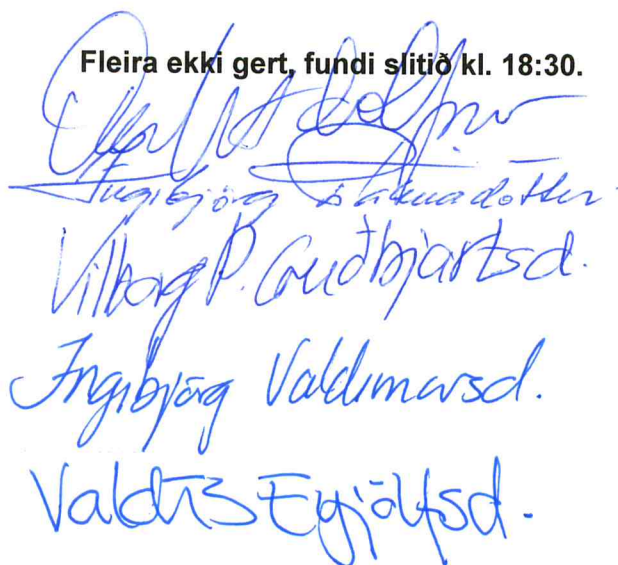 Fleira ekki gert, fundi slitið kl. 18:30.
Ingibjörg
Vilborg Þ. Guðbjartsd.
Ingibjörg Valdimarsd.
Valdís Eyjólfsd.